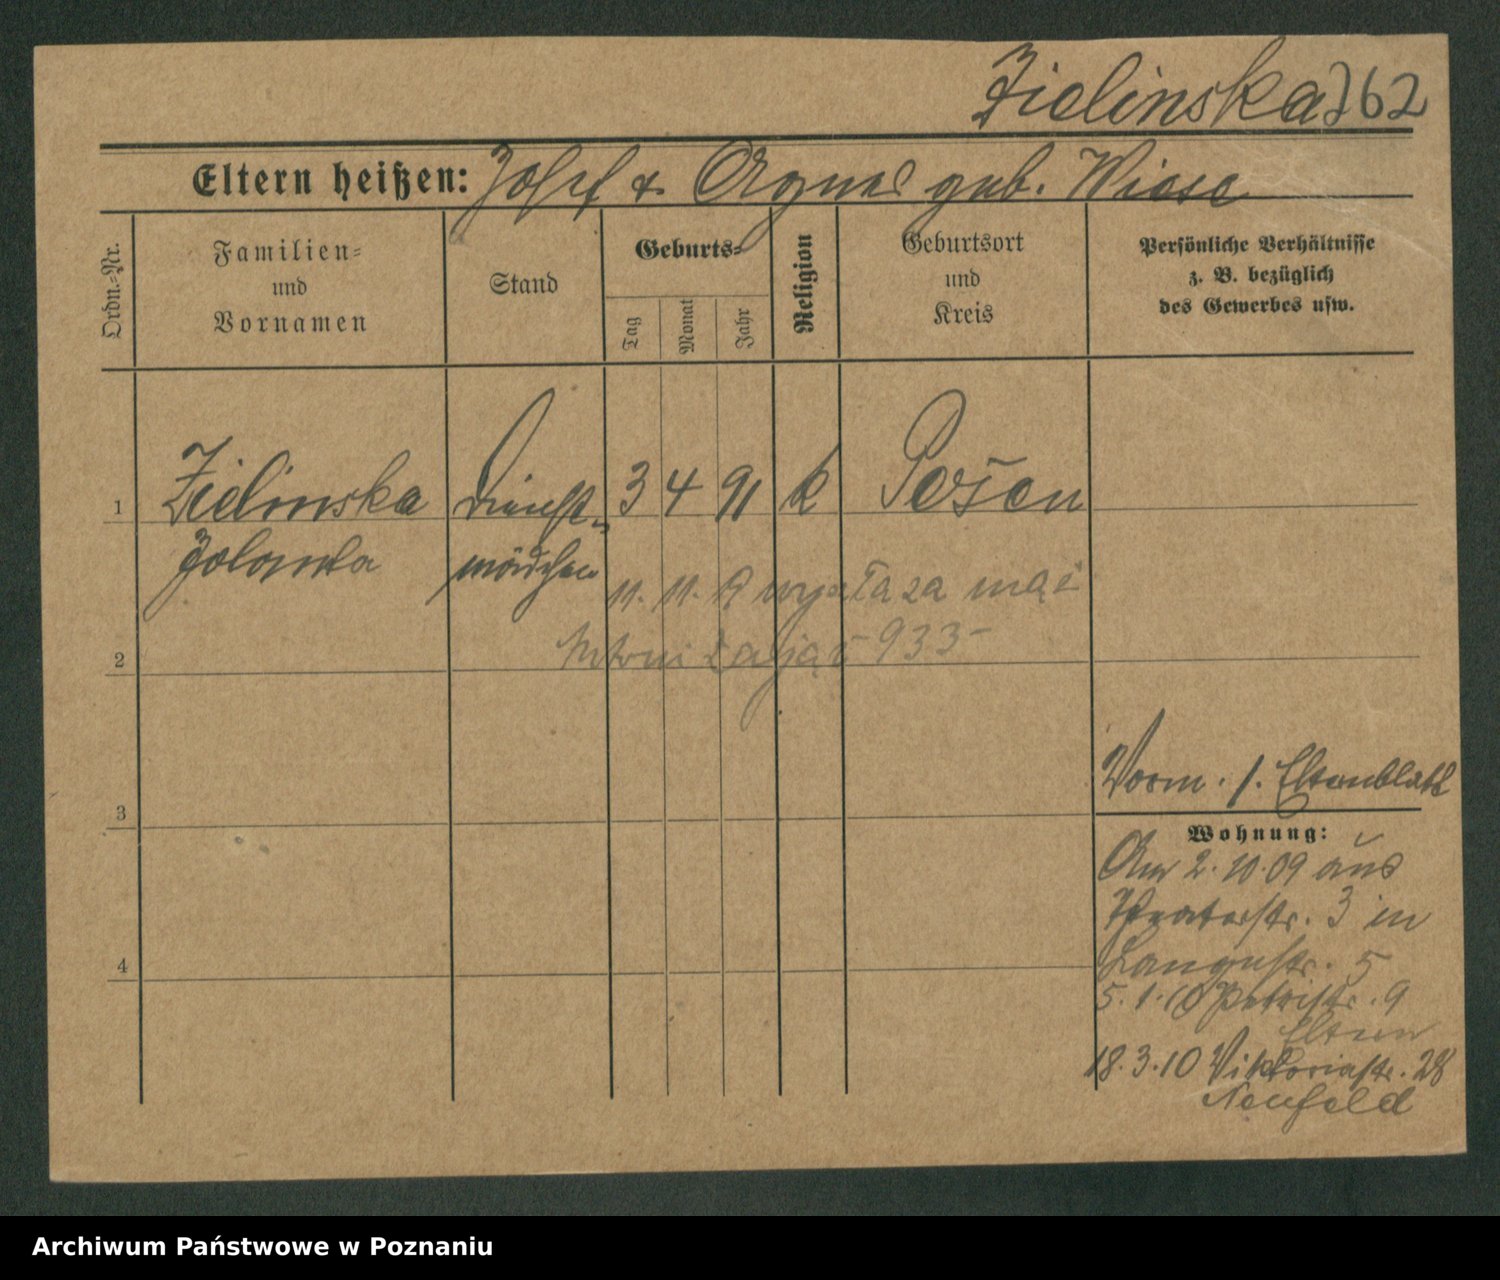 Zielinska 762
Eltern heißen: Josef & Agnes geb. Wiese
Ordn.-Nr.
Familien-
und
Vornamen
Stand
Geburts-
Tag
Monat
Jahr
Religion
Geburtsort
und
Kreis
Persönliche Verhältnisse
z. B. bezüglich
des Gewerbes usw.
1 Zielinska Dienst- 3 4 91 k Posen
Jolanta mädchen
11. 11. wyszła za mąż
2 Antoni Zając 933
3
Vorm. s. Elternblatt
Wohnung:
Am 2.10.09 aus
Theaterstr. 3 in
Langestr. 5
4
5.1.10 Petristr. 9
Eltern
18.3.10 Viktoriastr. 28
Neufeld
Archiwum Państwowe w Poznaniu